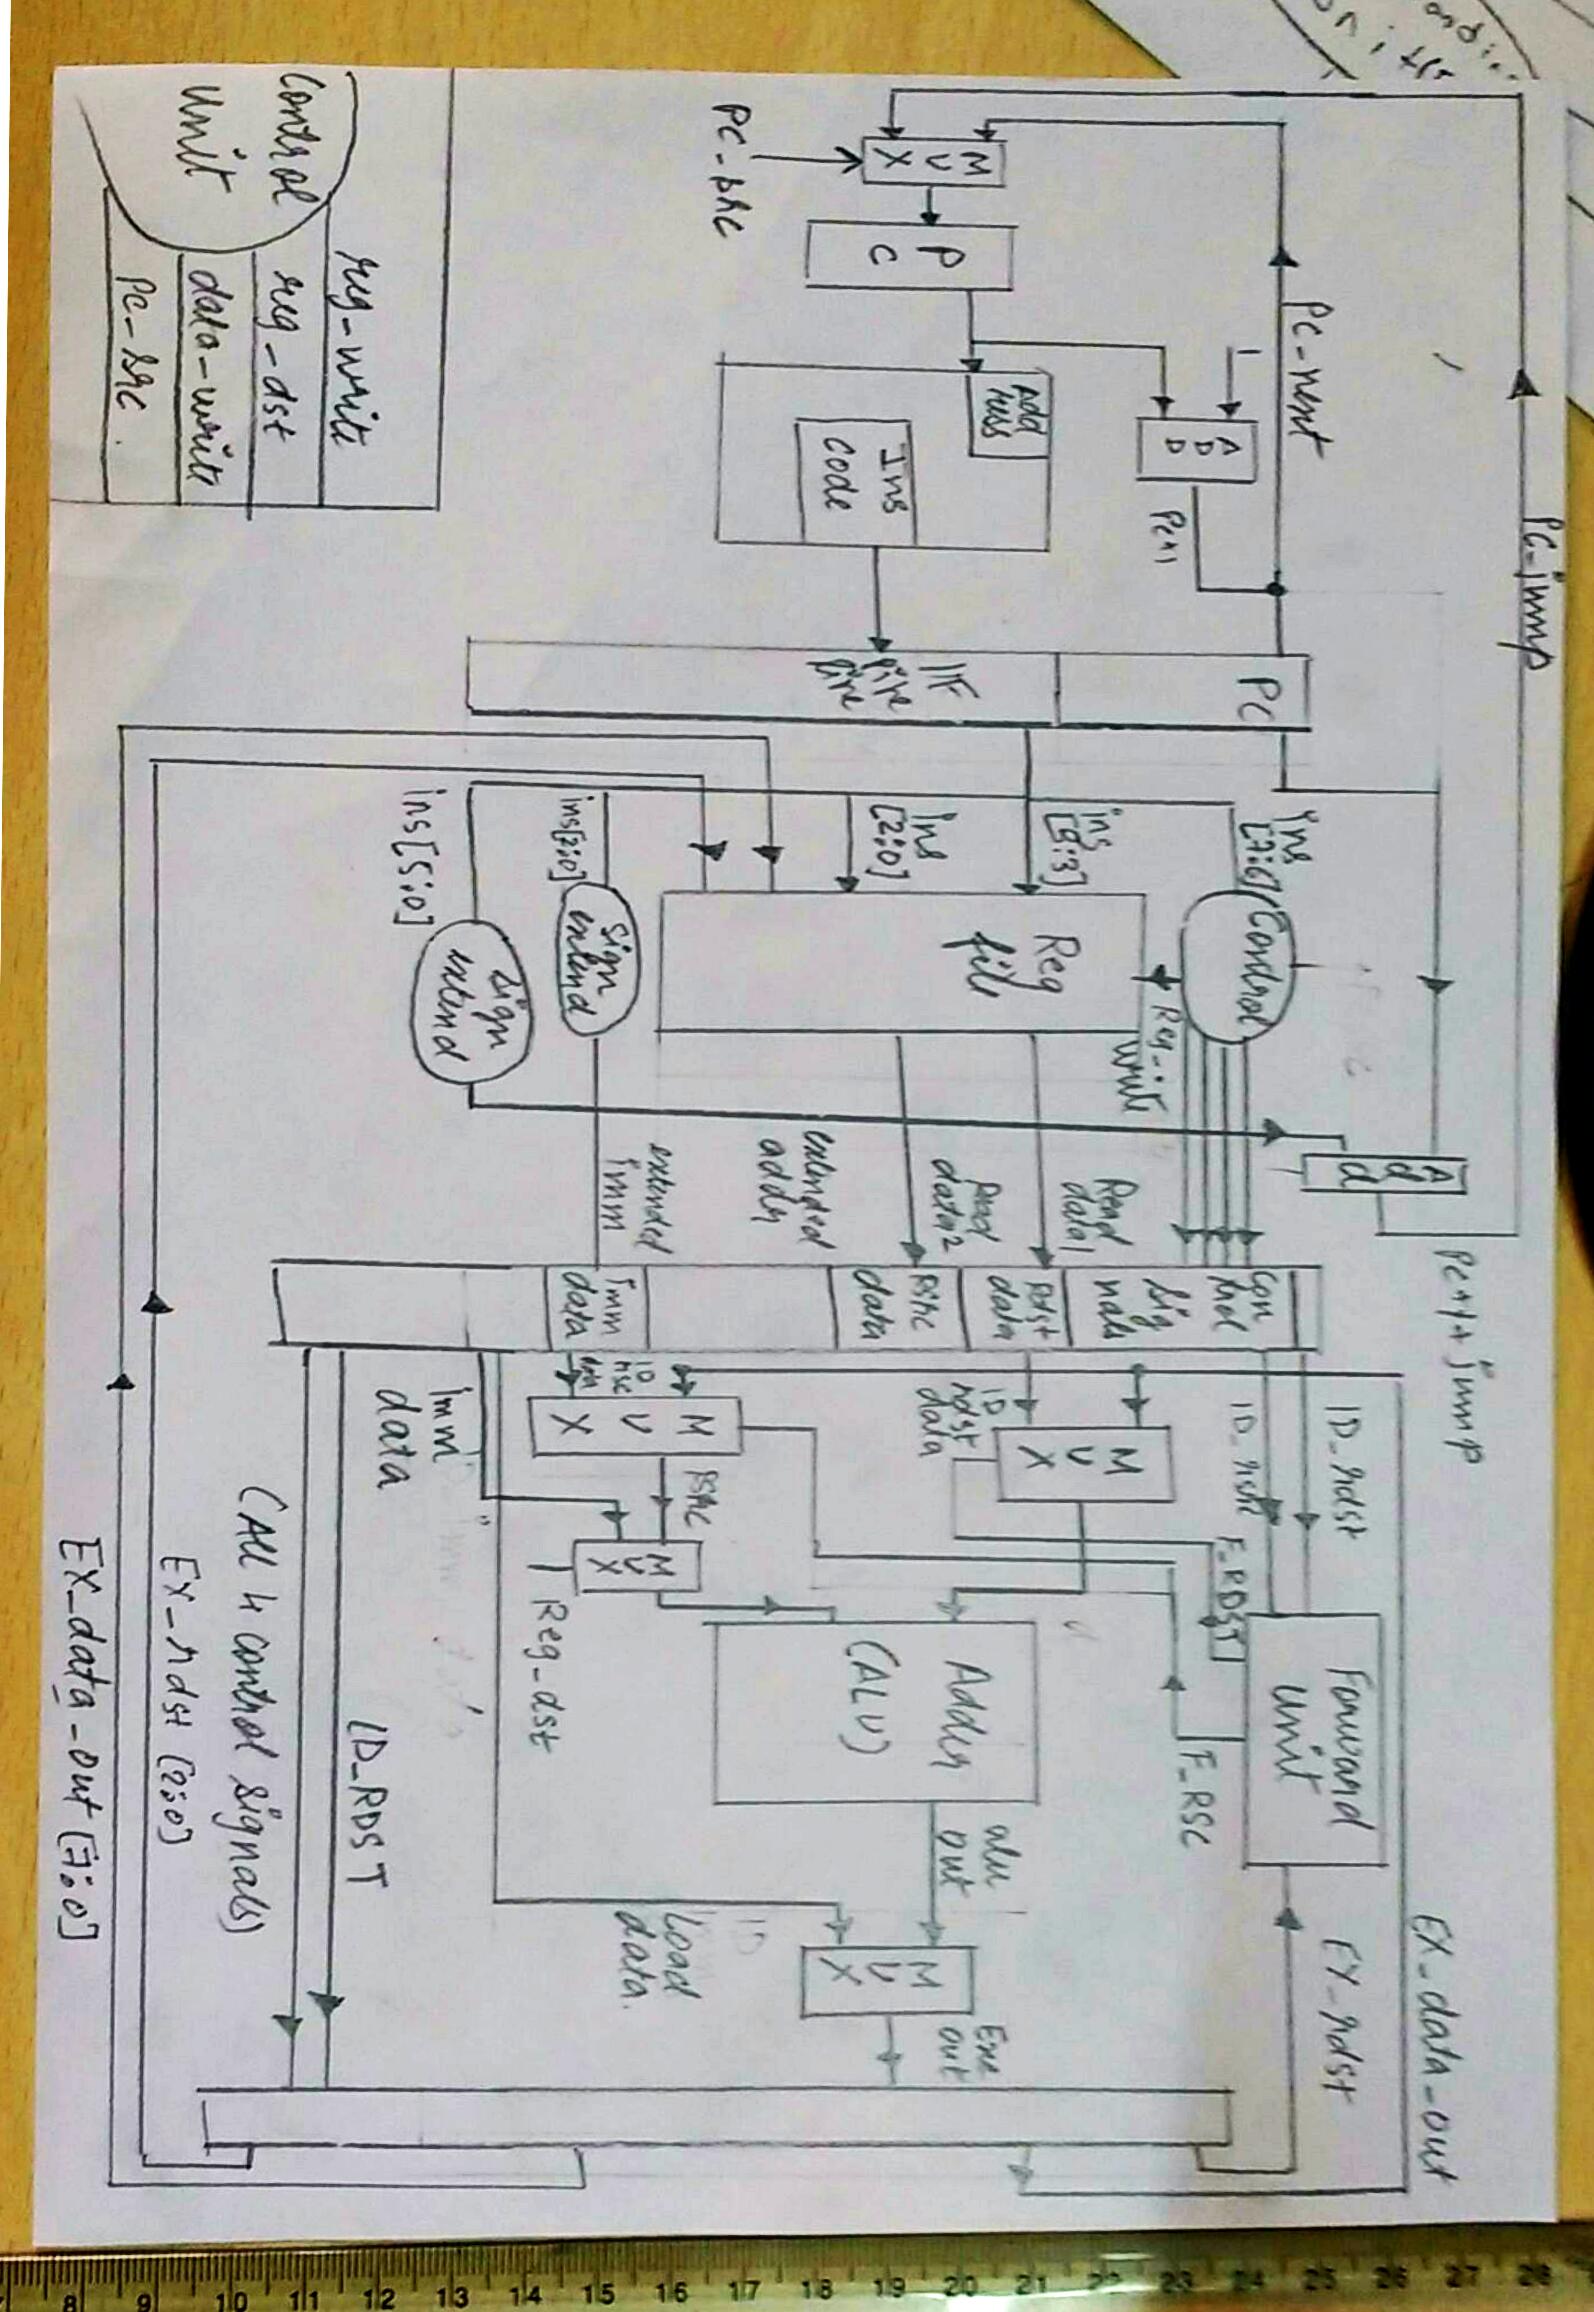 PC-jump
PC-next
PC-src
M
U
X
P
C
1
A
D
D
PC+1
Add
ress
Ins
code
PC
IF
pipe
pipe
ins
[7:6]
Control
ins
[5:3]
ins
[2:0]
Reg
file
Reg-write
ins[2:0]
Sign
extend
ins[5:0]
Sign
extend
A
d
d
PC+1+jump
Read
data1
Read
data2
extended
addr
extended
imm
Con
trol
sig
nals
Rdst
data
Rsrc
data
Imm
data
ID_rdst
ID_rsrc
ID
rdst
data
M
U
X
ID
rsc
data
M
U
X
Rsrc
M
U
X
Imm
data
Reg_dst
F_RDST
F_RSC
Forward
Unit
Adder
(ALU)
alu
out
M
U
X
Load
data.
Exe
out
EX_data_out
EX_rdst
ID_RDST
(All 4 control signals)
EX_rdst (2:0)
EX_data_out [7:0]
Control
Unit
reg-write
reg-dst
data-write
PC-src.
8 9 10 11 12 13 14 15 16 17 18 19 20 21 22 23 24 25 26 27 28